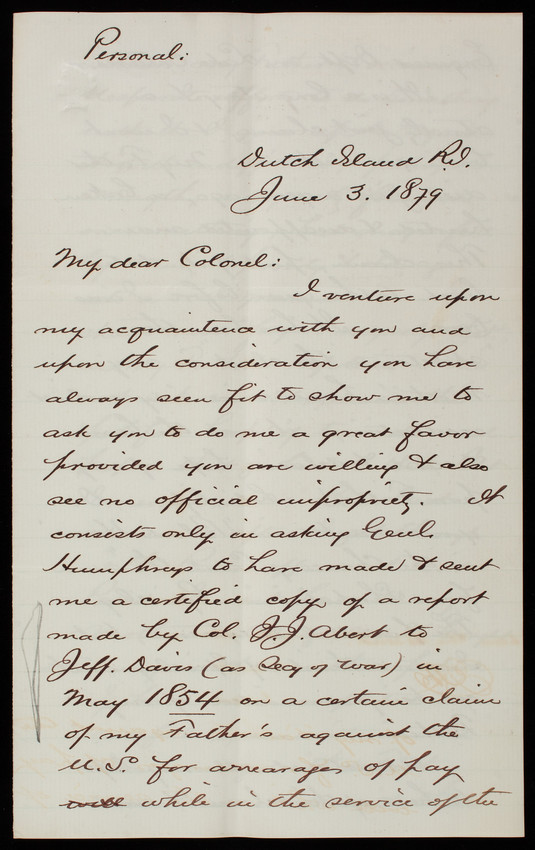 Personal:
Dutch Island R.I.
June 3. 1879
My dear Colonel:
I venture upon
my acquaintence with you and
upon the consideration you have
always seen fit to show me to
ask you to do me a great favor
provided you are willing & also
see no official impropriety. It
consists only in asking Genl.
Humphreys to have made & sent
me a certified copy of a report
made by Col. J.J. Abert to
Jeff. Davis (as Secy of War) in
May 1854 on a certain claim
of my Father's against the
U.S. for arrearages of pay
while in the service of the